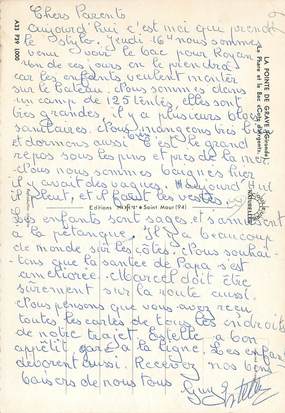 Chers Parents
Aujourd'hui c'est moi qui prend
le stylo. Jeudi 16 nous sommes
venu voir le bac pour Royan
un de ces jours on le prendra
car les enfants veulent monter
sur le bateau. Nous sommes dans
un camp de 125 tentes, elles sont
très grandes. il y a plusieurs blocs
sanitaires. Nous mangeons très bien
et dormons aussi. C'est le grand
repos sous les pins et près de la mer.
Nous nous sommes baignés hier
il y avait des vagues. Aujourd'hui
il pleut, et il faut vestes.
Les enfants sont sages, et s'amusent
à la pétanque. Il y a beaucoup
de monde sur les côtes. Nous souhai-
tons que la santée de Papa s'est
améliorée. Marcel doit être
sûrement sur la route aussi.
Nous pensons que vous avez reçu
toutes les cartes de tous les endroits
de notre trajet. Estelle a bon
appétit gare à la ligne. Les enfants
dévorent aussi. Recevez nos bons
baisers de nous tous
Guy Estelle
LA POINTE DE GRAVE (Gironde)
Le Phare et le Bac «Côte d'Argent».
Saint Maur (94)